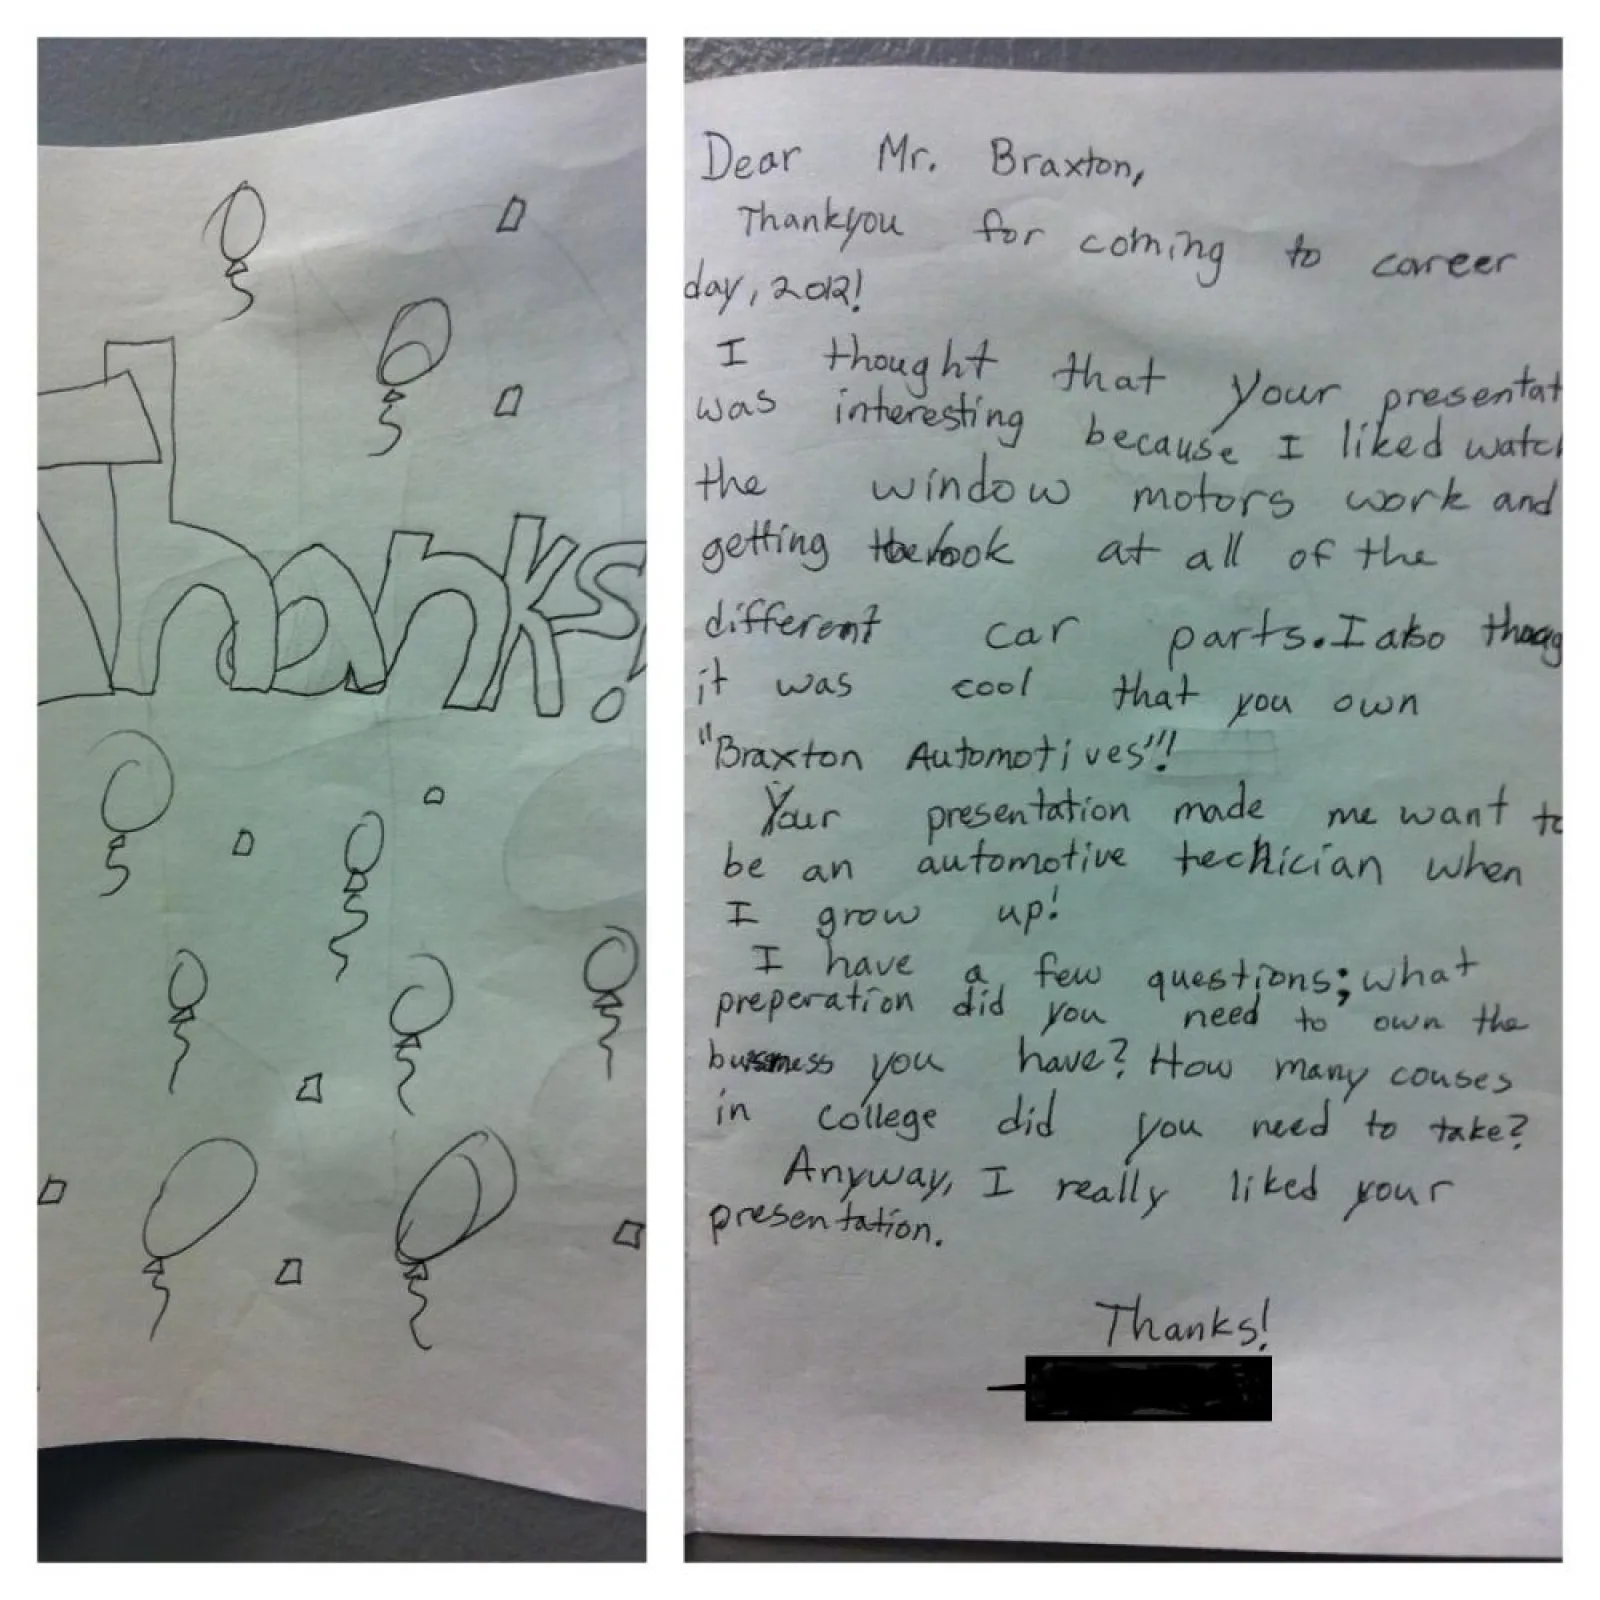 Thanks!
Dear Mr. Braxton,
Thankyou for coming to career
day, 2012!
I thought that your presentat
was interesting because I liked watch
the window motors work and
getting look at all of the
different car parts. I also thoug
it was cool that you own
"Braxton Automotives"!!
Your presentation made me want to
be an automotive technician when
I grow up!
I have a few questions; what
preperation did you need to own the
bussness you have? How many couses
in college did you need to take?
Anyway, I really liked your
presentation.
Thanks!